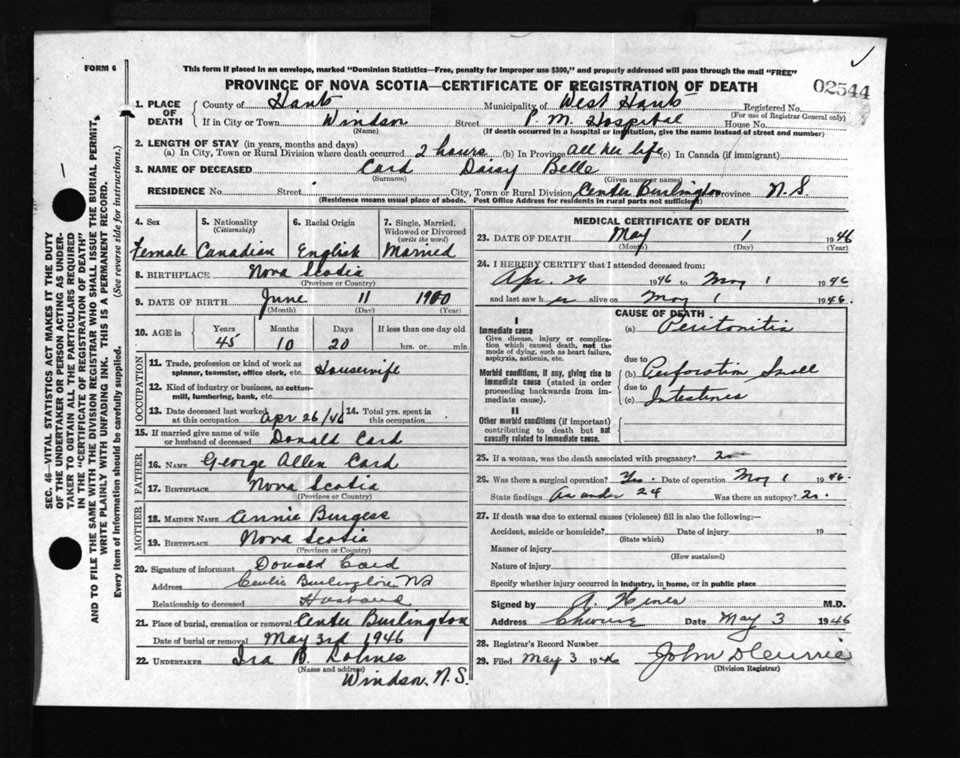 FORM 6
This form if placed in an envelope, marked "Dominion Statistics—Free, penalty for improper use $300," and properly addressed will pass through the mail "FREE"
PROVINCE OF NOVA SCOTIA—CERTIFICATE OF REGISTRATION OF DEATH
02544
1. PLACE OF DEATH
County of Hants Municipality of West Hants Registered No.
(For use of Registrar General only)
If in City or Town Windsor Street P. M. Hospital House No.
(Name) (If death occurred in a hospital or institution, give the name instead of street and number)
2. LENGTH OF STAY (in years, months and days)
(a) In City, Town or Rural Division where death occurred 2 hours (b) In Province all her life (c) In Canada (if immigrant)
3. NAME OF DECEASED Card Daisy Belle
(Surname) (Given name or names)
RESIDENCE No. Street City, Town or Rural Division Center Burlington Province N.S.
(Residence means usual place of abode. Post Office Address for residents in rural parts not sufficient)
4. Sex Female
5. Nationality (Citizenship) Canadian
6. Racial Origin English
7. Single, Married, Widowed or Divorced (write the word) Married
8. BIRTHPLACE Nova Scotia
(Province or Country)
9. DATE OF BIRTH June 11 1900
(Month) (Day) (Year)
10. AGE in Years Months Days If less than one day old
45 10 20 hrs. or min.
OCCUPATION
11. Trade, profession or kind of work as spinner, teamster, office clerk, etc. Housewife
12. Kind of industry or business, as cotton-mill, lumbering, bank, etc.
13. Date deceased last worked at this occupation Apr 26/46
14. Total yrs. spent in this occupation
15. If married give name of wife or husband of deceased Donald Card
FATHER
16. NAME George Allen Card
17. BIRTHPLACE Nova Scotia
(Province or Country)
MOTHER
18. MAIDEN NAME Annie Burgess
19. BIRTHPLACE Nova Scotia
(Province or Country)
20. Signature of informant Donald Card
Address Burlington NS
Relationship to deceased Husband
21. Place of burial, cremation or removal Center Burlington
Date of burial or removal May 3rd 1946
22. UNDERTAKER Ira B.
(Name and address)
Windsor, N.S.
MEDICAL CERTIFICATE OF DEATH
23. DATE OF DEATH May 1 1946
(Month) (Day) (Year)
24. I HEREBY CERTIFY that I attended deceased from:
Apr. 26 1946 to May 1 1946
and last saw her alive on May 1 1946.
CAUSE OF DEATH
I
Immediate cause
Give disease, injury or complication which caused death, not the mode of dying, such as heart failure, asphyxia, asthenia, etc.
(a) Peritonitis
due to
Morbid conditions, if any, giving rise to immediate cause (stated in order proceeding backwards from immediate cause).
(b) Perforation Small
due to
(c) Intestines
II
Other morbid conditions (if important) contributing to death but not causally related to immediate cause.
25. If a woman, was the death associated with pregnancy? no
26. Was there a surgical operation? Yes. Date of operation May 1 1946.
State findings As under 24 Was there an autopsy? no.
27. If death was due to external causes (violence) fill in also the following:—
Accident, suicide or homicide? Date of injury 19
(State which)
Manner of injury
(How sustained)
Nature of injury
Specify whether injury occurred in industry, in home, or in public place
Signed by M.D.
Address Date May 3 1946
28. Registrar's Record Number
29. Filed May 3 1946
(Division Registrar)
SEC. 46—VITAL STATISTICS ACT MAKES IT THE DUTY
OF THE UNDERTAKER OR PERSON ACTING AS UNDER-
TAKER TO OBTAIN ALL THE PARTICULARS REQUIRED
IN THE "CERTIFICATE OF REGISTRATION OF DEATH"
AND TO FILE THE SAME WITH THE DIVISION REGISTRAR WHO SHALL ISSUE THE BURIAL PERMIT.
WRITE PLAINLY WITH UNFADING INK. THIS IS A PERMANENT RECORD.
Every item of information should be carefully supplied. (See reverse side for instructions.)